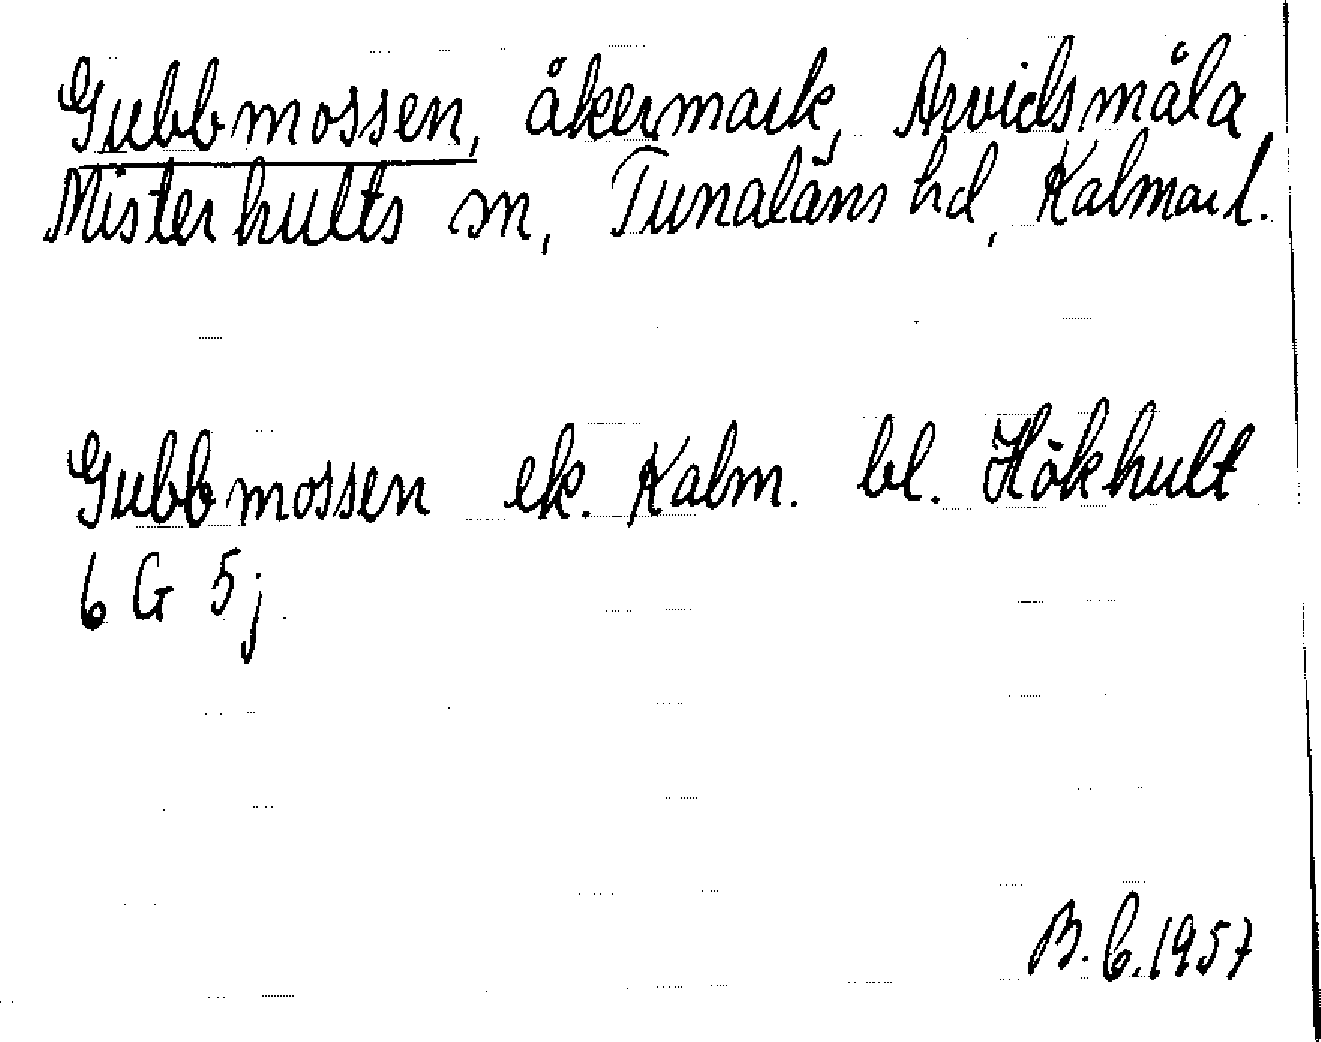 Gubbmossen, åkermark, Arvidsmåla,
Misterhults sn, Tunaläns hd, Kalmar l.
Gubbmossen ek. Kalm. bl. Hökhult
6 G 5j.
B.C. 1957